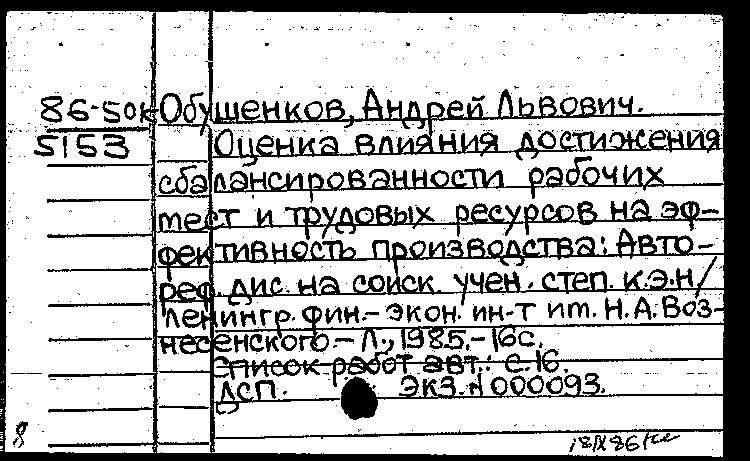 86-50к Обушенков, Андрей Львович.
5153 Оценка влияния достижения
сбалансированности рабочих
мест и трудовых ресурсов на эф-
фективность производства: Авто-
реф. дис. на соиск. учен. степ. к.э.н/
Ленингр. фин.-экон. ин-т им. Н.А.Воз-
несенского.-Л., 1985.-16с.
Список работ авт.: с.16.
ДСП. Экз.N000093.
8
18IX86